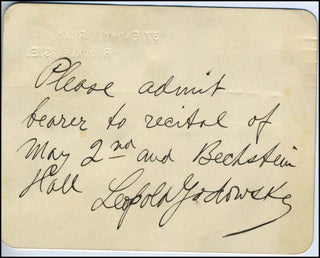 Please admit
bearer to recital of
May 2nd and Bechstein
Hall Leopold Godowsky